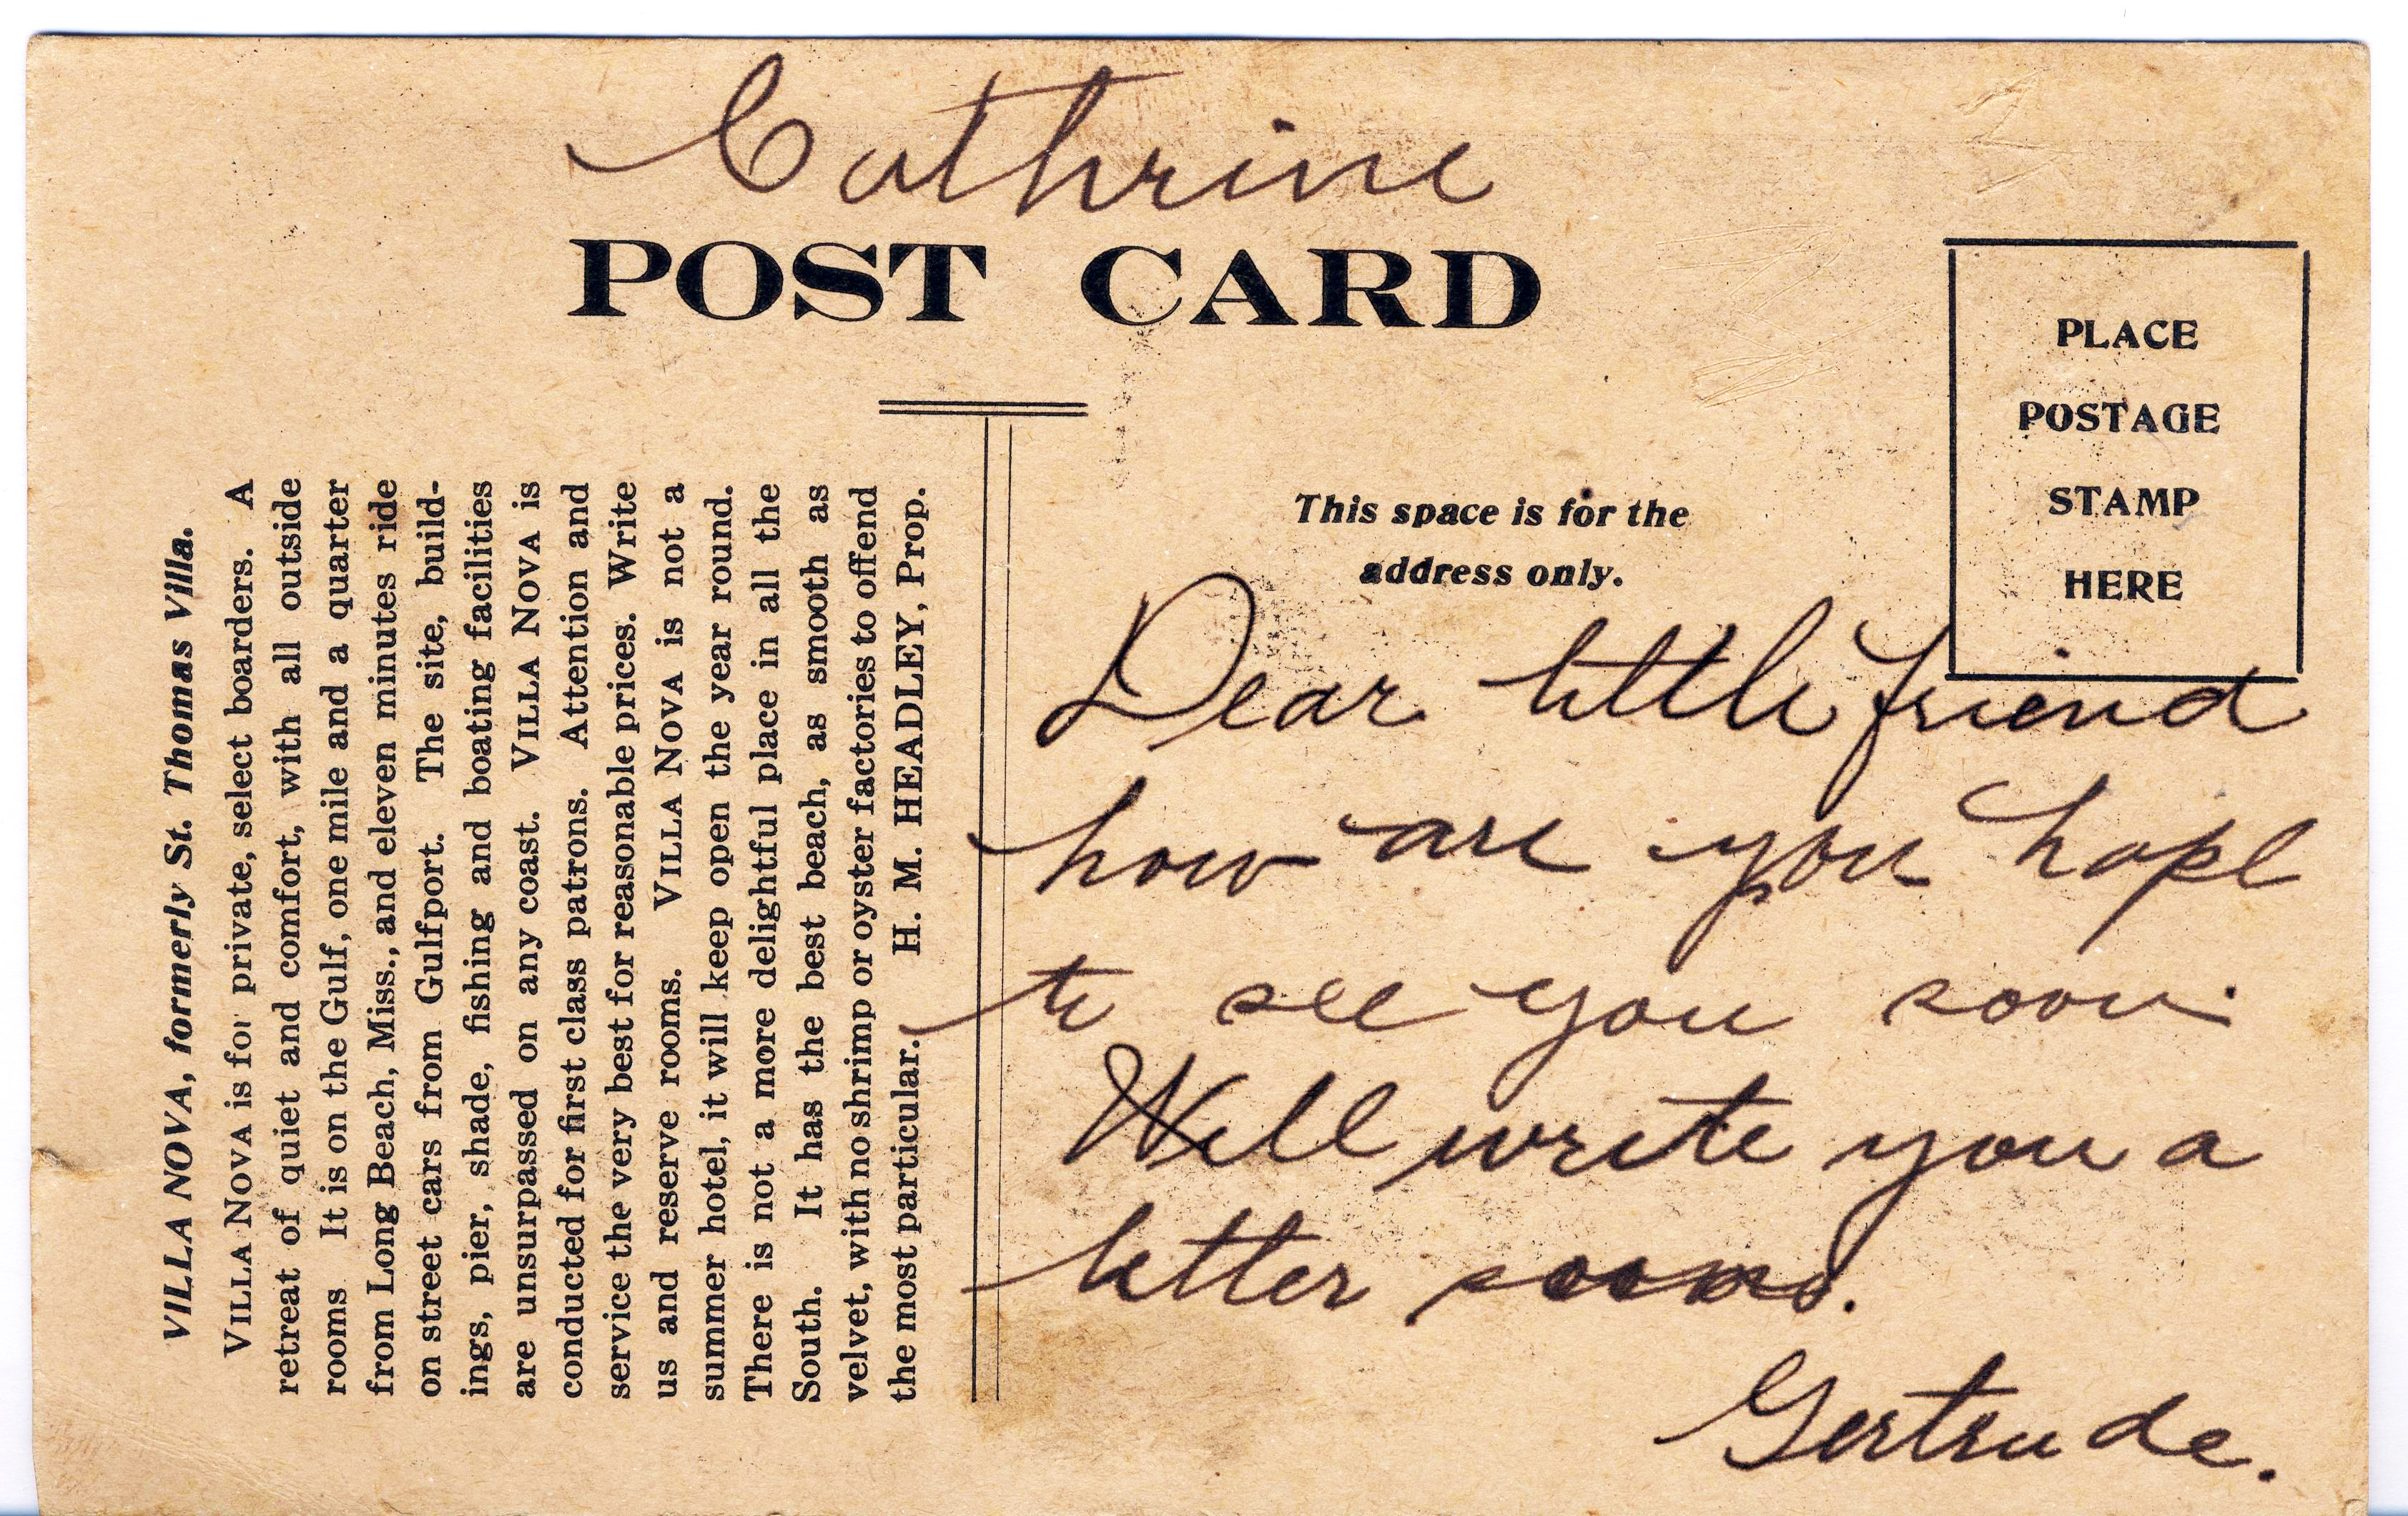 Cathrine
POST CARD
PLACE
POSTAGE
STAMP
HERE
VILLA NOVA, formerly St. Thomas Villa.
VILLA NOVA is for private, select boarders. A
retreat of quiet and comfort, with all outside
rooms It is on the Gulf, one mile and a quarter
from Long Beach, Miss., and eleven minutes ride
on street cars from Gulfport. The site, build-
ings, pier, shade, fishing and boating facilities
are unsurpassed on any coast. VILLA NOVA is
conducted for first class patrons. Attention and
service the very best for reasonable prices. Write
us and reserve rooms. VILLA NOVA is not a
summer hotel, it will keep open the year round.
There is not a more delightful place in all the
South. It has the best beach, as smooth as
velvet, with no shrimp or oyster factories to offend
the most particular. H. M. HEADLEY, Prop.
This space is for the
address only.
Dear little friend
how are you hope
to see you soon.
Will write you a
letter soon.
Gertrude.